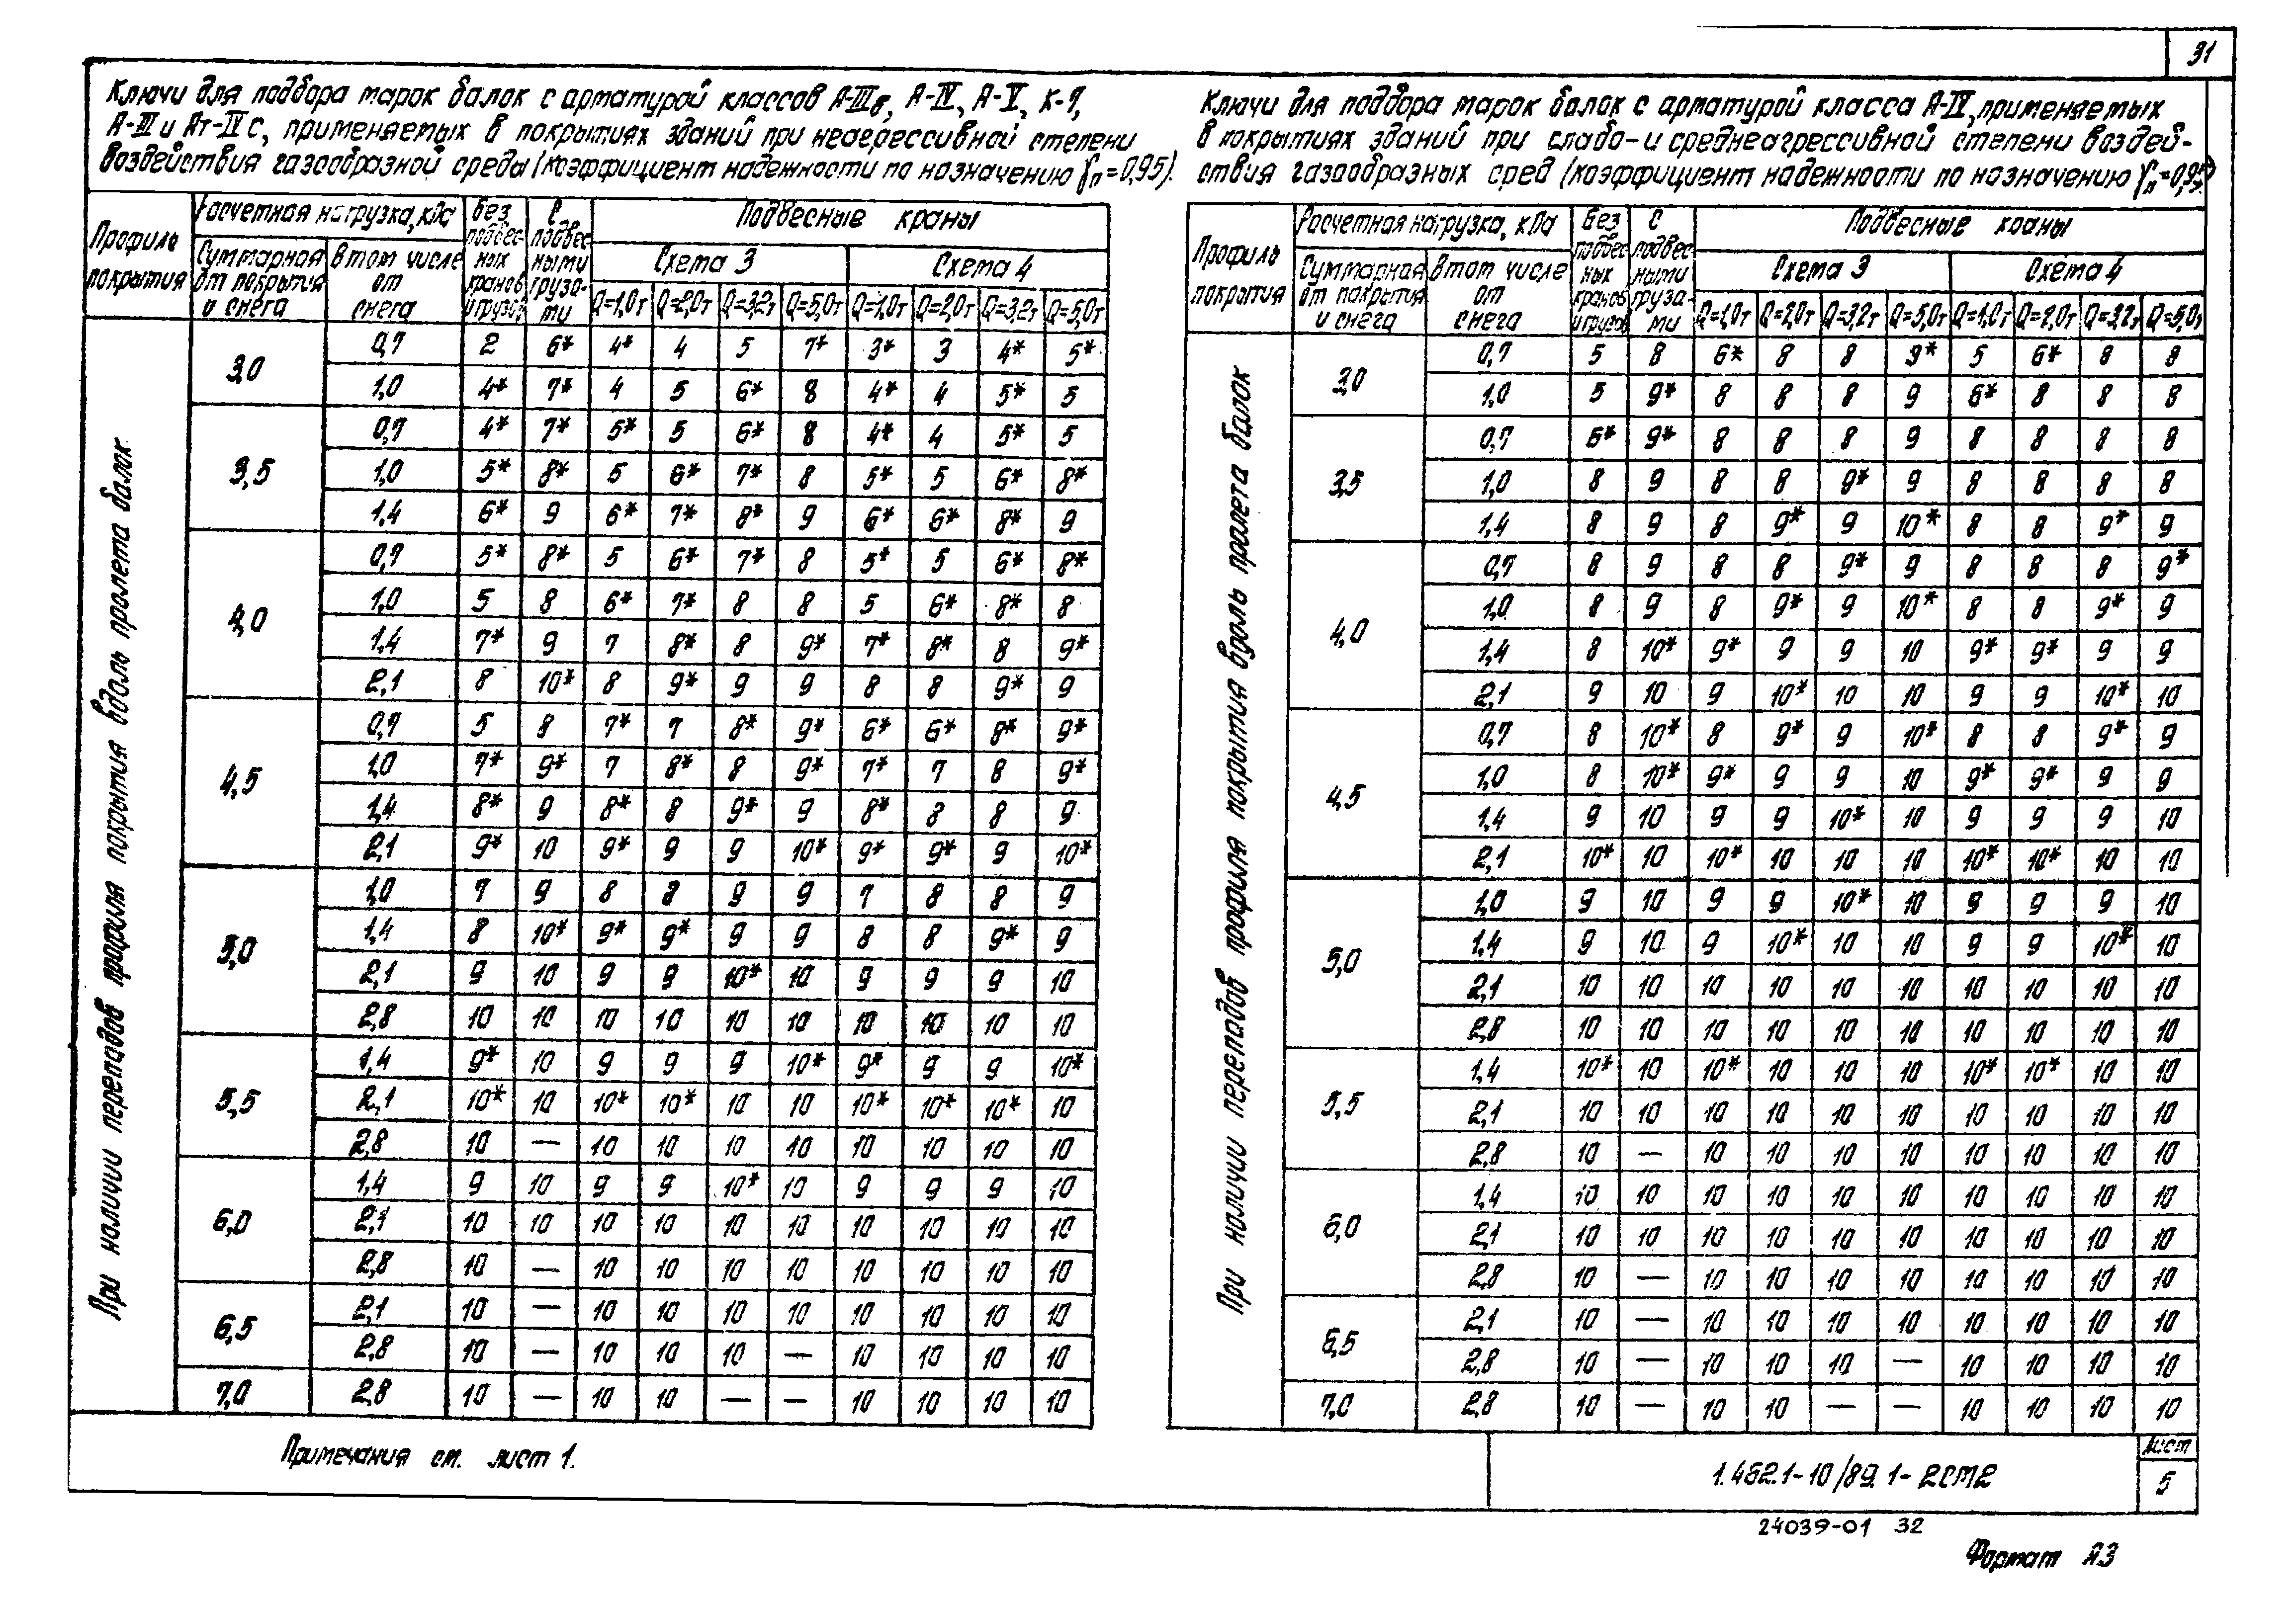 31
Ключи для подбора марок балок с арматурой классов А-IIIв, А-IV, А-V, К-7,
А-III и Ат-IVС, применяемых в покрытиях зданий при неагрессивной степени
воздействия газообразной среды (коэффициент надежности по назначению γn=0,95).
Профиль покрытия | Расчетная нагрузка, кПа | Без подвесных кранов и грузов | С подвесными грузами | Подвесные краны
Суммарная от покрытия и снега | В том числе от снега | Схема 3 | Схема 4
Q=1,0т Q=2,0т Q=3,2т Q=5,0т Q=1,0т Q=2,0т Q=3,2т Q=5,0т
При наличии перепадов профиля покрытия вдоль пролета балок
3,0 0,7 2 6* 4* 4 5 7* 3* 3 4* 5*
1,0 4* 7* 4 5 6* 8 4* 4 5* 5
3,5 0,7 4* 7* 5* 5 6* 8 4* 4 5* 5
1,0 5* 8* 5 6* 7* 8 5* 5 6* 8*
1,4 6* 9 6* 7* 8* 9 6* 6* 8* 9
4,0 0,7 5* 8* 5 6* 7* 8 5* 5 6* 8*
1,0 5 8 6* 7* 8 8 5 6* 8* 8
1,4 7* 9 7 8* 8 9* 7* 8* 8 9*
2,1 8 10* 8 9* 9 9 8 8 9* 9
4,5 0,7 5 8 7* 7 8* 9* 6* 6* 8* 9*
1,0 7* 9* 7 8* 8 9* 7* 7 8 9*
1,4 8* 9 8* 8 9* 9 8* 8 8 9
2,1 9* 10 9* 9 9 10* 9* 9* 9 10*
5,0 1,0 7 9 8 8 9 9 7 8 8 9
1,4 8 10* 9* 9* 9 9 8 8 9* 9
2,1 9 10 9 9 10* 10 9 9 9 10
2,8 10 10 10 10 10 10 10 10 10 10
5,5 1,4 9* 10 9 9 9 10* 9* 9 9 10*
2,1 10* 10 10* 10* 10 10 10* 10* 10* 10
2,8 10 — 10 10 10 10 10 10 10 10
6,0 1,4 9 10 9 9 10* 10 9 9 9 10
2,1 10 10 10 10 10 10 10 10 10 10
2,8 10 — 10 10 10 10 10 10 10 10
6,5 2,1 10 — 10 10 10 10 10 10 10 10
2,8 10 — 10 10 10 — 10 10 10 10
7,0 2,8 10 — 10 10 — — 10 10 10 10
Ключи для подбора марок балок с арматурой класса А-IV, применяемых
в покрытиях зданий при слабо- и среднеагрессивной степени воздей-
ствия газообразных сред (коэффициент надежности по назначению γn=0,95)
Профиль покрытия | Расчетная нагрузка, кПа | Без подвесных кранов и грузов | С подвесными грузами | Подвесные краны
Суммарная от покрытия и снега | В том числе от снега | Схема 3 | Схема 4
Q=1,0т Q=2,0т Q=3,2т Q=5,0т Q=1,0т Q=2,0т Q=3,2т Q=5,0т
При наличии перепадов профиля покрытия вдоль пролета балок
3,0 0,7 5 8 6* 8 8 9* 5 6* 8 8
1,0 5 9* 8 8 8 9 6* 8 8 8
3,5 0,7 6* 9* 8 8 8 9 8 8 8 8
1,0 8 9 8 8 9* 9 8 8 8 8
1,4 8 9 8 9* 9 10* 8 8 9* 9
4,0 0,7 8 9 8 8 9* 9 8 8 8 9*
1,0 8 9 8 9* 9 10* 8 8 9* 9
1,4 8 10* 9* 9 9 10 9* 9* 9 9
2,1 9 10 9 10* 10 10 9 9 10* 10
4,5 0,7 8 10* 8 9* 9 10* 8 8 9* 9
1,0 8 10* 9* 9 9 10 9* 9* 9 9
1,4 9 10 9 9 10* 10 9 9 9 10
2,1 10* 10 10* 10 10 10 10* 10* 10 10
5,0 1,0 9 10 9 9 10* 10 9 9 9 10
1,4 9 10 9 10* 10 10 9 9 10* 10
2,1 10 10 10 10 10 10 10 10 10 10
2,8 10 10 10 10 10 10 10 10 10 10
5,5 1,4 10* 10 10* 10 10 10 10* 10* 10 10
2,1 10 10 10 10 10 10 10 10 10 10
2,8 10 — 10 10 10 10 10 10 10 10
6,0 1,4 10 10 10 10 10 10 10 10 10 10
2,1 10 10 10 10 10 10 10 10 10 10
2,8 10 — 10 10 10 10 10 10 10 10
6,5 2,1 10 — 10 10 10 10 10 10 10 10
2,8 10 — 10 10 10 — 10 10 10 10
7,0 2,8 10 — 10 10 — — 10 10 10 10
Примечания см. лист 1.
1.462.1-10/89.1-2СМ2
Лист
5
24039-01 32
Формат А3